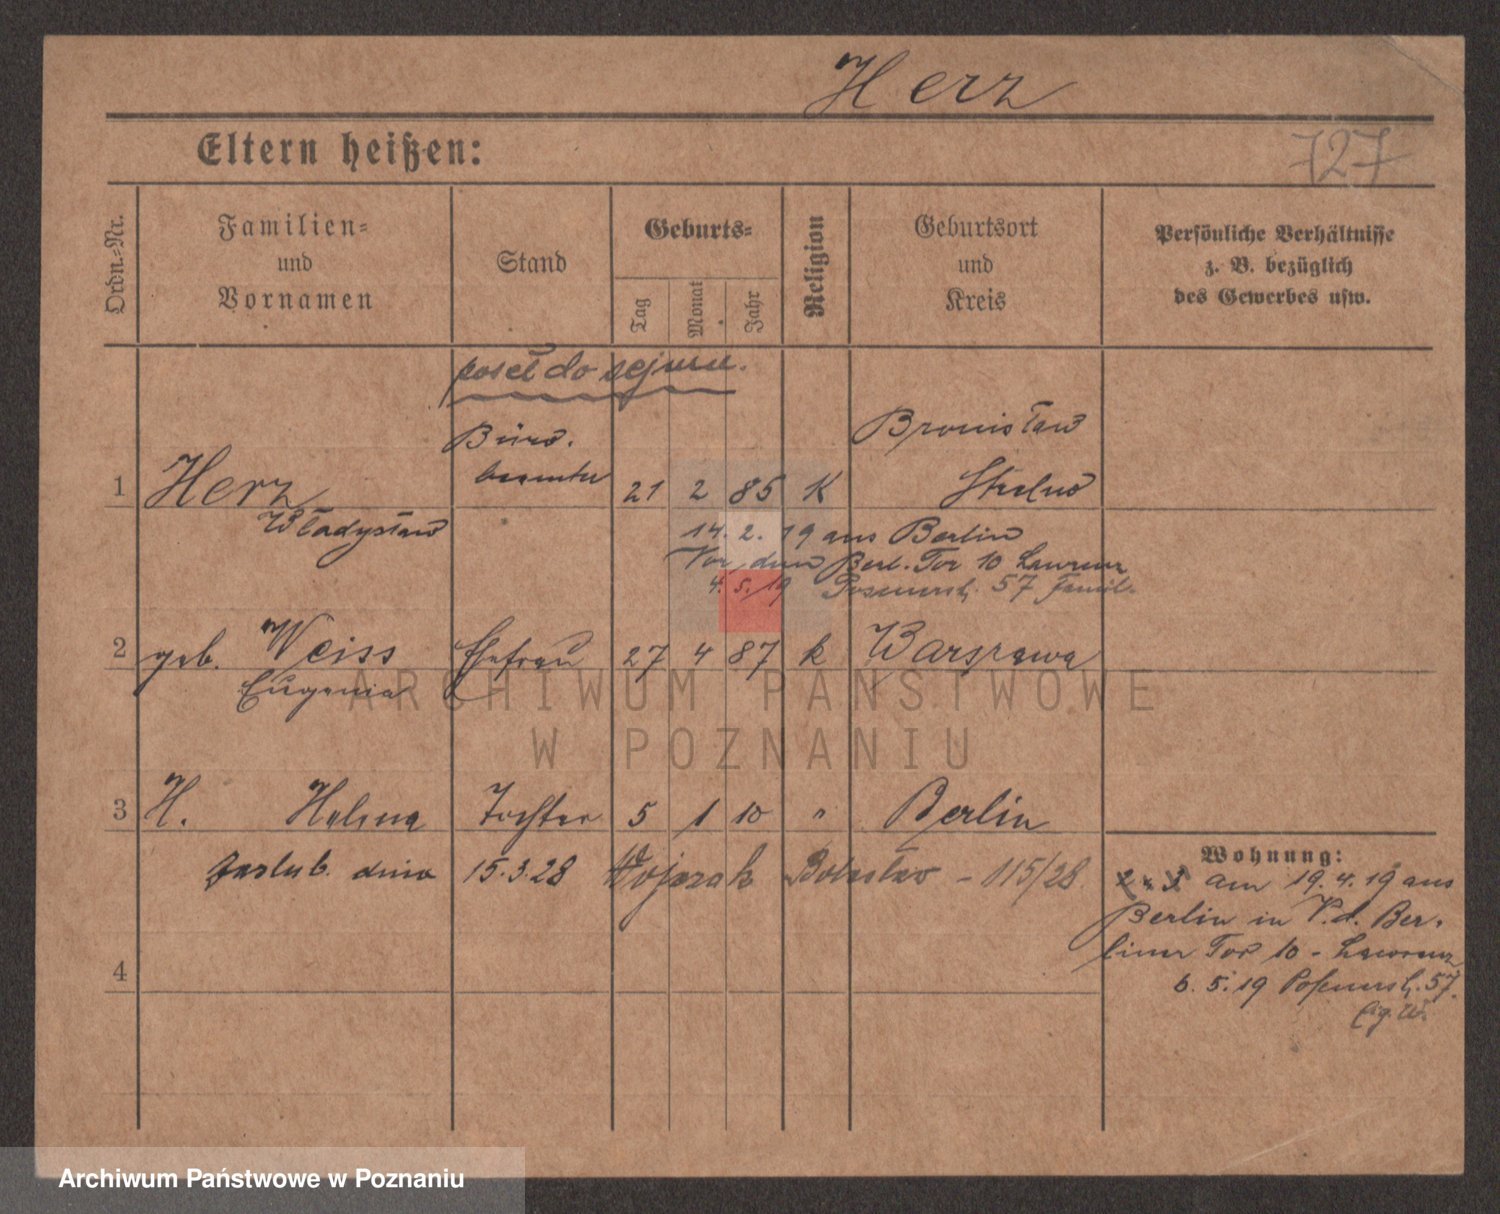 Herz
727
Eltern heißen:
Ordn.=Nr.
Familien=
und
Vornamen
Stand
Geburts=
Tag
Monat
Jahr
Religion
Geburtsort
und
Kreis
Persönliche Verhältnisse
z. B. bezüglich
des Gewerbes usw.
poseł do sejmu.
1 Herz Büro. beamter 21 2 85 K Bronisław Strelno
Władysław
14. 2. 19 aus Berlin
Vor dem Berl. Tor 10 Lawrenz
4. 5. 19 Posenerstr. 57 Famil.
2 geb. Weiss Ehefrau 27 4 87 k Warszawa
Eugenia
3 H. Helena Tochter 5 1 10 " Berlin
zaślub. dnia 15.3.28 Wojczak Bolesław - 115/28
4
Wohnung:
2 u. 3 am 19.4.19 aus
Berlin in V.d. Ber-
liner Tor 10 - Lawrenz
6. 5. 19 Posenerstr. 57.
Eig. W.
ARCHIWUM PAŃSTWOWE
W POZNANIU
Archiwum Państwowe w Poznaniu